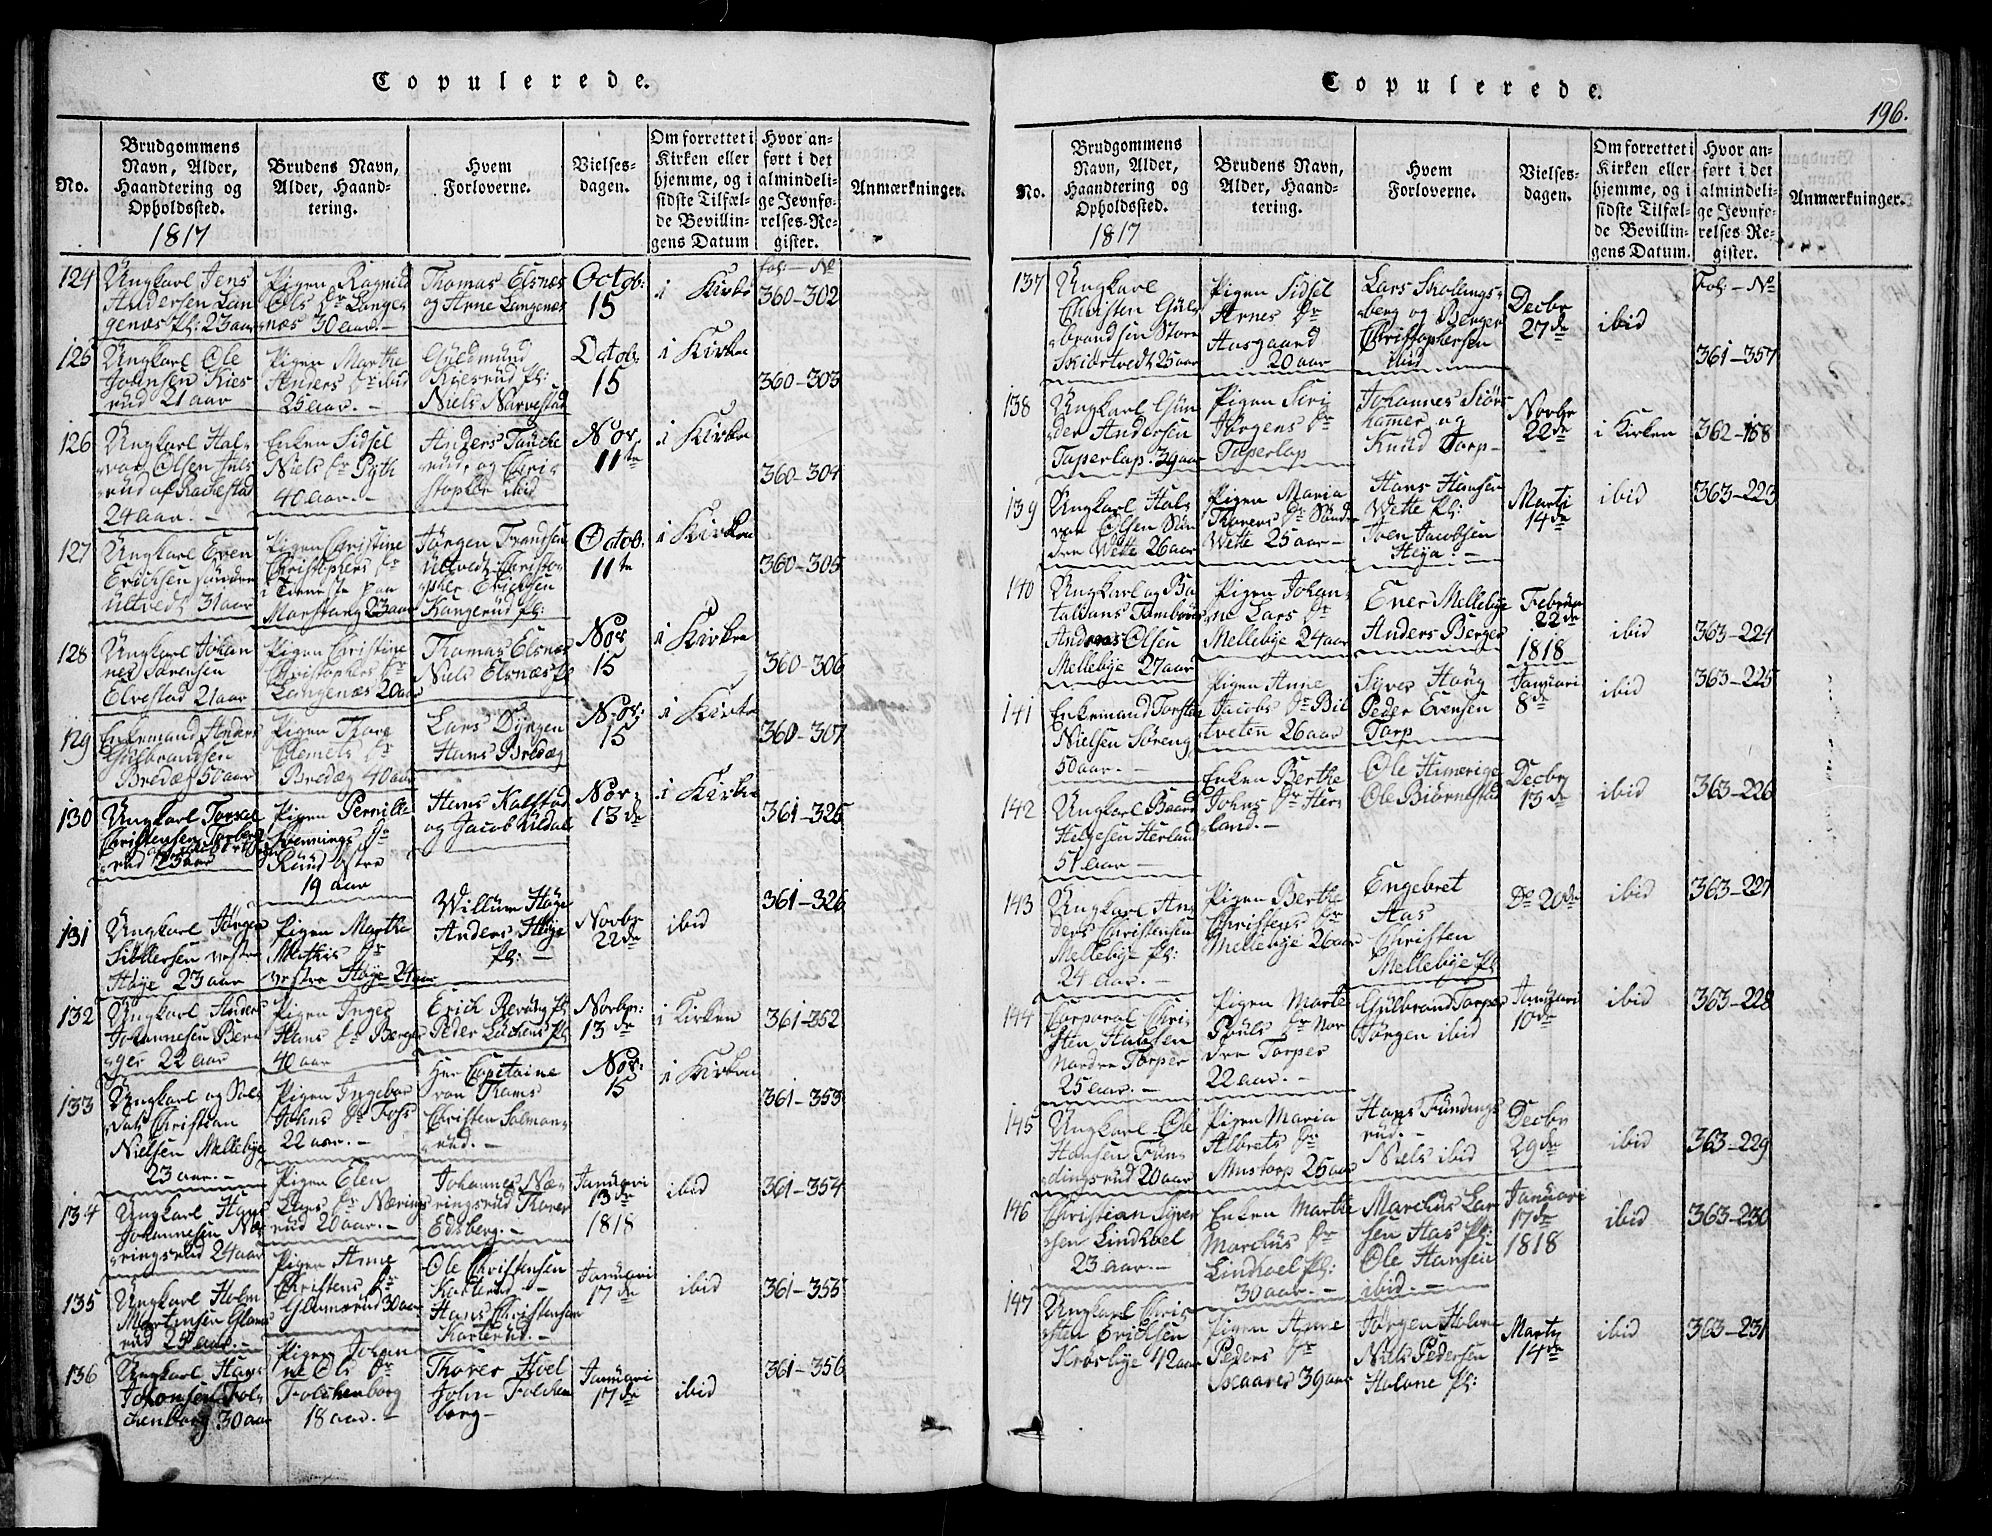 Copulerede.
No.
Brudgommens
Navn, Alder,
Haandtering og
Opholdssted.
1817
Brudens Navn,
Alder, Haand-
tering.
Hvem
Forloverne.
Vielses-
dagen.
Om forrettet i
Kirken eller
hjemme, og i
sidste Tilfæl-
de Bevillin-
gens Datum
Hvor an-
ført i det
almindeli-
ge Jevnfø-
relses-Re-
gister.
Anmærkninger.
Fol: - No
124
Ungkarl Jens
Andersen Lan-
genæs Pl: 23 aar
Pigen Ragnild
Ols Dr Langes-
næs 30 aar. -
Thomas Elsnæs
og Arne Langenæs
Octob:
15
i Kirke
360-302
125
Ungkarl Ole
Johnsen Kies-
rud 21 aar
Pigen Marthe
Anders Dr ibid
25 aar. -
Guldmund
Kiesrud Pl:
Niels Narvestad
Octob:
15
i Kirken
360-303
126
Ungkarl Hal-
vor Olsen
rud af Rakkestad
24 aar. -
Enken Sidsel
Niels Dr
40 aar. -
Anders
rud, og Chri-
stopher ibid
Nov
11te
i Kirken
360-304
127
Ungkarl Even
Erichsen søndre
Ultvedt 31 aar
Pigen Christine
Christophers Dr
i Tieneste paa
Marstrang 23 aar
Jörgen Frandsen
Ultvedt Christo-
pher Erichsen
Kangerud Pl:
Octob:
11te
i Kirken
360-305
128
Ungkarl Johan-
nes Sörensen
Elvestad 21 aar
Pigen Christine
Christophers Dr
Langenæs 20 aar
Thomas Elsnæs
Niels Elsnæs Pl
Nov
15
i Kirken
360-306
129
Enkemand Anders
Gulbrandsen
Bredæg 50 aar
Pigen Thore
Clemets Dr
Bredæg 40 aar
Lars Dyngen
Hans Bredæg
Nov:
15
i Kirke
360-307
130
Ungkarl
Christensen
rud 23 aar
Pigen Pernille
Svennings Dr
Ruud östre
19 aar
Hans Kalstad
og Jacob Uldal
Nov:
13de
i Kirke
361-325
131
Ungkarl Jörgen
vestre
Höye 23 aar
Pigen Marthe
Mathis Dr
vestre Höye 24 aar
Willum Höye
Anders Höye
Pl: -
Novbr
22de
ibid
361-326
132
Ungkarl Anders
Johannesen Ber-
ger 22 aar
Pigen Inger
Hans Dr Berger
40 aar
Erich Pl
Peder Pl:
Novbr:
13de
i Kirken
361-352
133
Ungkarl og Sol-
dat Christian
Nielsen Mellebye
23 aar. -
Pigen Ingebor
Johns Dr Foss
22 aar. -
Herr Capitaine
von Thams
Christen Salmon-
rud. -
Nov:
15
i Kirken
361-353
134
Ungkarl Hans
Johannesen Næ-
ringsrud 24 aar
Pigen Elen
Lars Dr Nærings-
rud 20 aar. -
Johannes Næ-
ringsrud Thorer
Edsberg. -
Januari
13de
1818
ibid
361-354
135
Ungkarl Holm
Martinsen Glomes-
rud 25 aar. -
Pigen Anne
Christens Dr
Glomesrud 30 aar
Ole Christensen
Karterud -
Hans Christensen
Karterud. -
Januari
17de
ibid
361-355
136
Ungkarl Hans
Johansen Fol-
chenborg 30 aar
Pigen Johan-
ne Ols Dr
Folchenborg
18 aar. -
Thorer Hoel
John Folchen-
borg -
Januari
17de
ibid
361-356
Copulerede.
196.
No.
Brudgommens
Navn, Alder,
Haandtering og
Opholdssted.
1817
Brudens Navn,
Alder, Haand-
tering.
Hvem
Forloverne.
Vielses-
dagen.
Om forrettet i
Kirken eller
hjemme, og i
sidste Tilfæl-
de Bevillin-
gens Datum.
Hvor an-
ført i det
almindeli-
ge Jevnfø-
relses-Re-
gister.
Anmærkninger.
Fol: - No
137
Ungkarl
Christen Gul-
brandsen Store
Skiörtvedt 25 aar
Pigen Sidsel
Arnes Dr
Aasgaard
20 aar
Lars Skolings-
berg og Berger
Christophersen
ibid
Decbr
27de
ibid
361-357
138
Ungkarl Gun-
der Andersen
Taperlap. 39 aar
Pigen Siri
Jörgens Dr
Taperlap
Johannes Skör-
kamer og
Knud Torp -
Novbr
22de
i Kirken
362-158
139
Ungkarl Hal-
vor Olsen Sön-
dre Wette 26 aar
Pigen Maria
Thorers Dr Sönd-
Wette 25 aar -
Hans Hansen
Wette Pl:
Joen Jacobsen
Heja. -
Marti
14de
ibid
363-223
140
Ungkarl og Ba-
tallions Tambour
Andreas Olsen
Mellebye 27 aar
Pigen Johan-
ne Lars Dr
Mellebye 24 aar
Ener Mellebye
Anders Berger
Februar
22de
1818
ibid
363-224
141
Enkemand Torsten
Nielsen Söreng
50 aar. -
Pigen Anne
Jacobs Dr Bil-
tveten 26 aar
Syver Haug
Peder Evensen
Torp
Januari
8de
ibid
363-225
142
Ungkarl Baard
Helgesen Herland
51 aar -
Enken Berthe
Johns Dr Her-
land. -
Ole Himerige
Ole Biörnestad
Decbr
13de
ibid
363-226
143
Ungkarl An-
ders Christensen
Mellebye Pl:
24 aar. -
Pigen Berthe
Christens Dr
Mellebye 26 aar
Engebret
Aas
Christen
Mellebye Pl
Do 20de
ibid
363-227
144
Corporal Chri-
sten Hansen
Nordre Torper
25 aar. -
Pigen Marte
Pouls Dr Nor-
dre Torper
22 aar. -
Gulbrand Torper
Jörgen ibid
Januari
10de
ibid
363-228
145
Ungkarl Ole
Hansen Fun-
dingsrud 20 aar
Pigen Maria
Albrets Dr
Mustorp 25 aar
Hans Fundings-
rud. -
Niels ibid
Decbr
29de
ibid
363-229
146
Christian Syver-
sen Lindhoel
23 aar. -
Enken Marthe
Marchus Dr
Lindhoel Pl:
30 aar. -
Marchus Lar-
sen Aas Pl:
Ole Hansen
ibid. -
Januari
17de
1818
ibid
363-230
147
Ungkarl Chri-
sten Erichsen
Krosbye 42 aar
Pigen Anne
Peders Dr
Skaarer 39 aar
Jörgen Holone
Niels Pedersen
Holone Pl:
Marty
14de
ibid
363-231